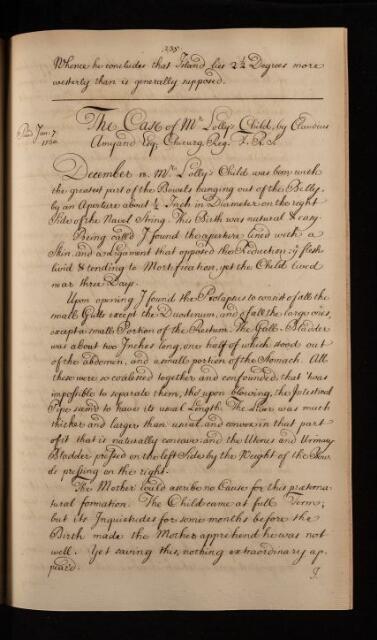 235
Whence he concludes that Island lies 2¼ Degrees more
westerly than is generally supposed.
The Case of Mrs Lolly's Child, by Claudius
Amyand Esq Chirurg. Reg. F.R.S.
Jan: 7
December 12. Mrs Lolly's Child was born with
the greatest part of the Bowels hanging out of the Belly,
by an Aperture about ½ Inch in Diameter on the right
Side of the Navel String. This Birth was natural & easy.
Being called I found the aperture lined with a
Skin, and a ligament that opposed the Reduction; ye flesh
livid & tending to Mortification, yet the Child lived
near three Days.
Upon opening I found the Prolapsus to consist of all the
small Gutts except the Duodenum, and of all the large ones,
except a small Portion of the Rectum. The Gall-Bladder
was about two Inches long, one half of which stood out
of the abdomen, and a small portion of the Stomach. All
these were so coalesced together and confounded, that 'twas
impossible to separate them, tho' upon blowing, the Intestinal
Pipe seem'd to have its usual Length. The Liver was much
thicker and larger than usual, and convex in that part
of it that is naturally concave; and the Uterus and Urinary
Bladder pressed on the left Side by the Weight of the Bow-
els pressing on the right.
The Mother could ascribe no Cause for this præterna-
tural formation. The Child came at full Term;
but its Inquietudes for some months before the
Birth made the Mother apprehend he was not
well. Yet saving this, nothing extraordinary ap-
peard.